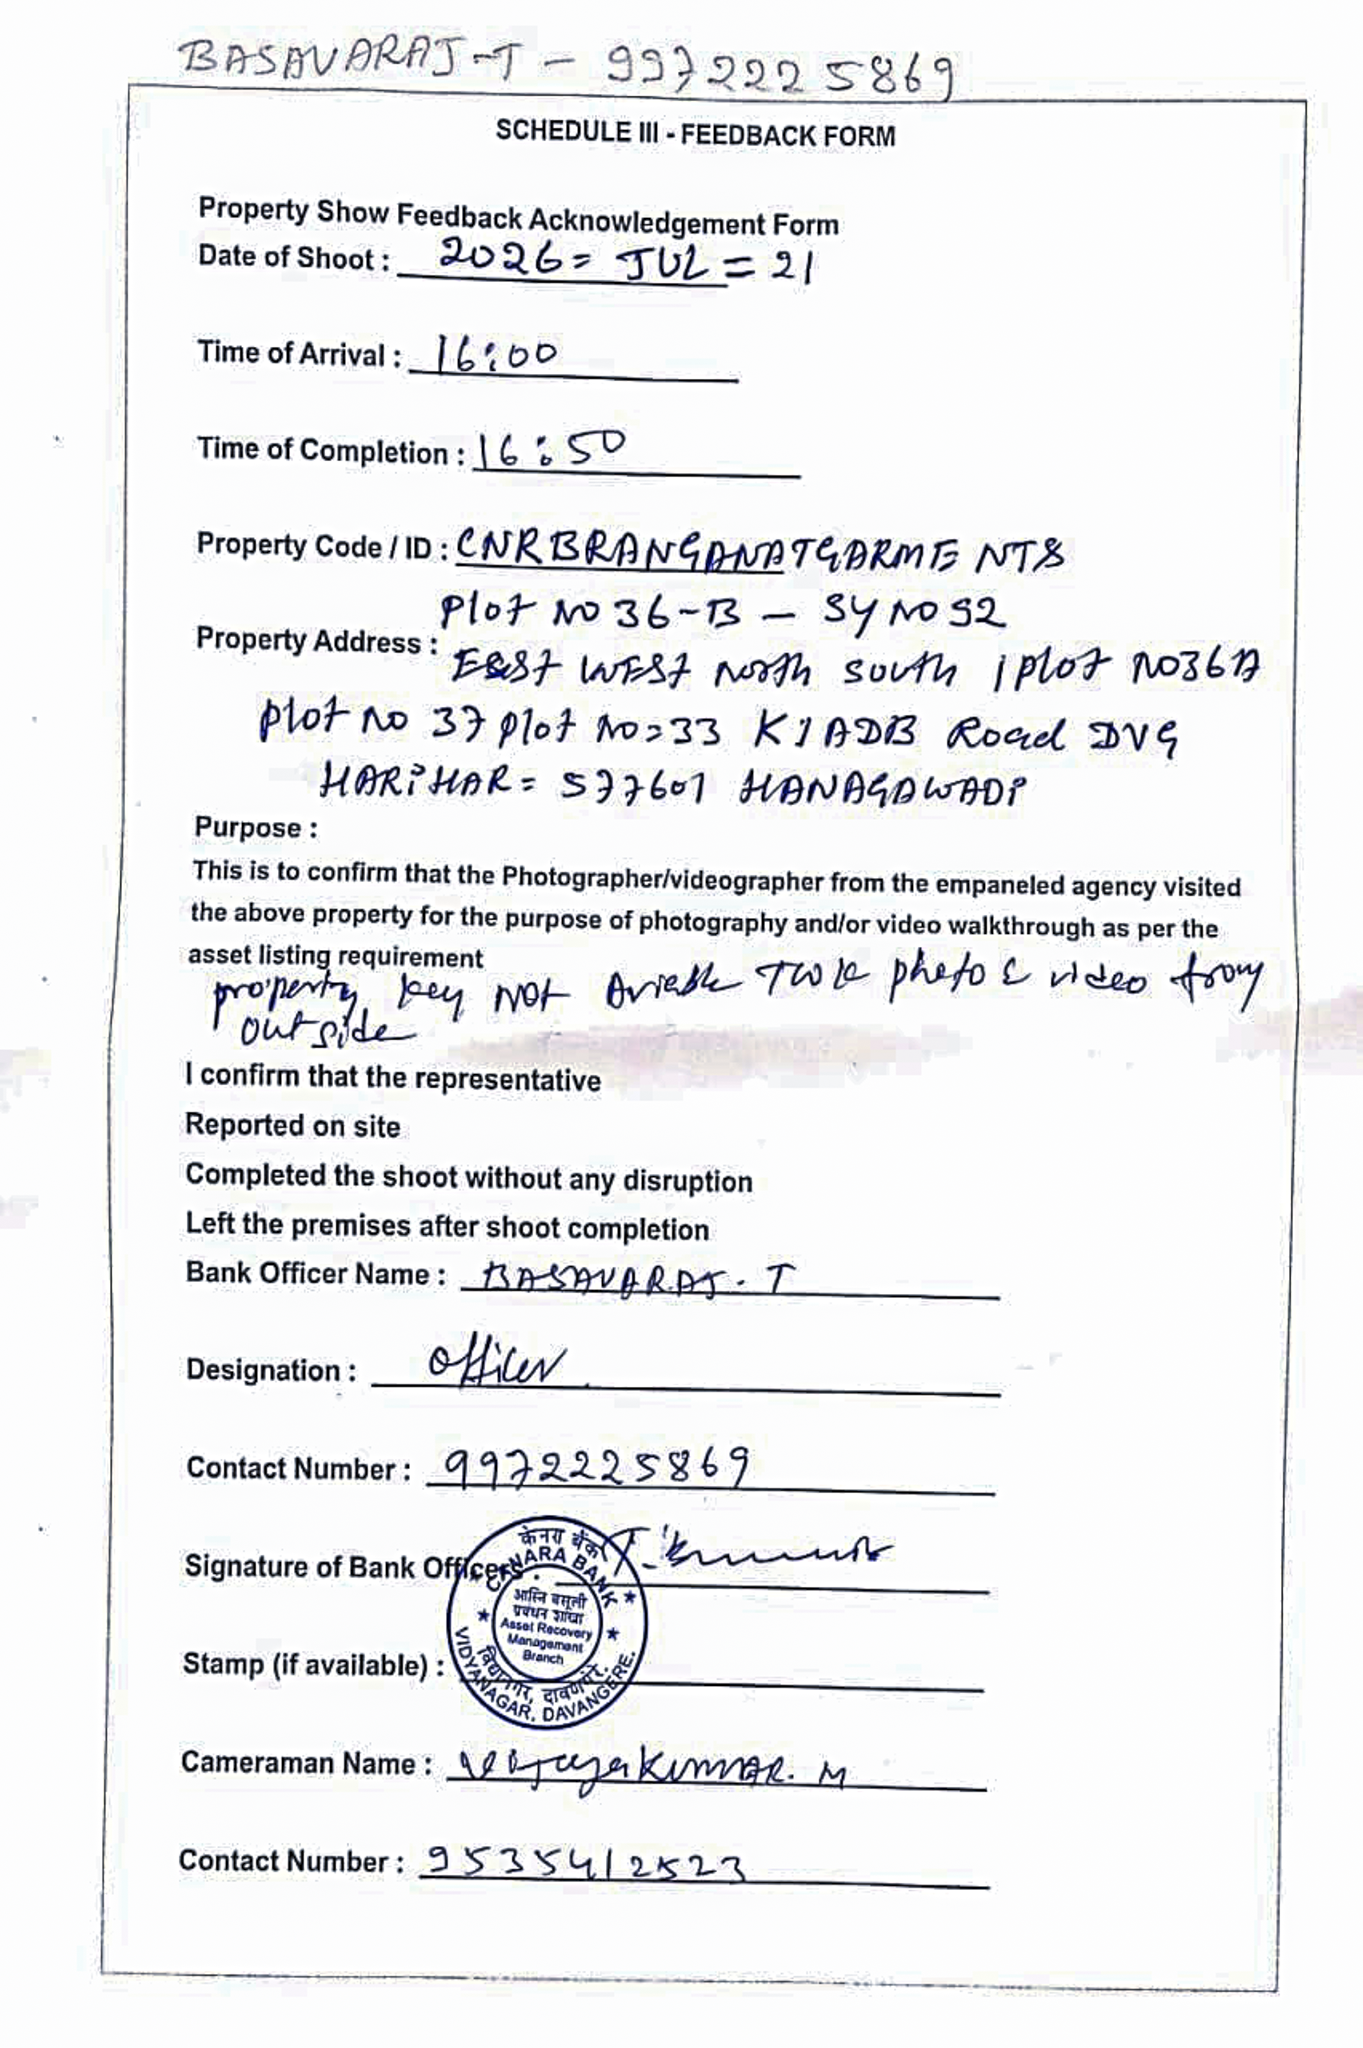 BASAVARAJ-T - 9972225869
SCHEDULE III - FEEDBACK FORM
Property Show Feedback Acknowledgement Form
Date of Shoot : 2026= JUL = 21
Time of Arrival : 16:00
Time of Completion : 16:50
Property Code / ID : CNRBRANGANATGARMENTS
Plot No 36-B - SY NO 92
Property Address : East West North South | plot No36A
plot no 37 plot No=33 KIADB Road DVG
HARIHAR = 577601 HANAGAWADI
Purpose :
This is to confirm that the Photographer/videographer from the empaneled agency visited
the above property for the purpose of photography and/or video walkthrough as per the
asset listing requirement
property key NOT photo & video from
outside
I confirm that the representative
Reported on site
Completed the shoot without any disruption
Left the premises after shoot completion
Bank Officer Name : BASAVARAJ. T
Designation : Officer
Contact Number : 9972225869
Signature of Bank Officer :
केनरा बैंक
CANARA BANK
आस्ति वसूली
प्रबंधन शाखा
Asset Recovery
Management
Branch
विद्यानगर, दावणगेरे.
VIDYANAGAR, DAVANGERE.
Stamp (if available) :
Cameraman Name : Vijayakumar. M
Contact Number : 9535412523